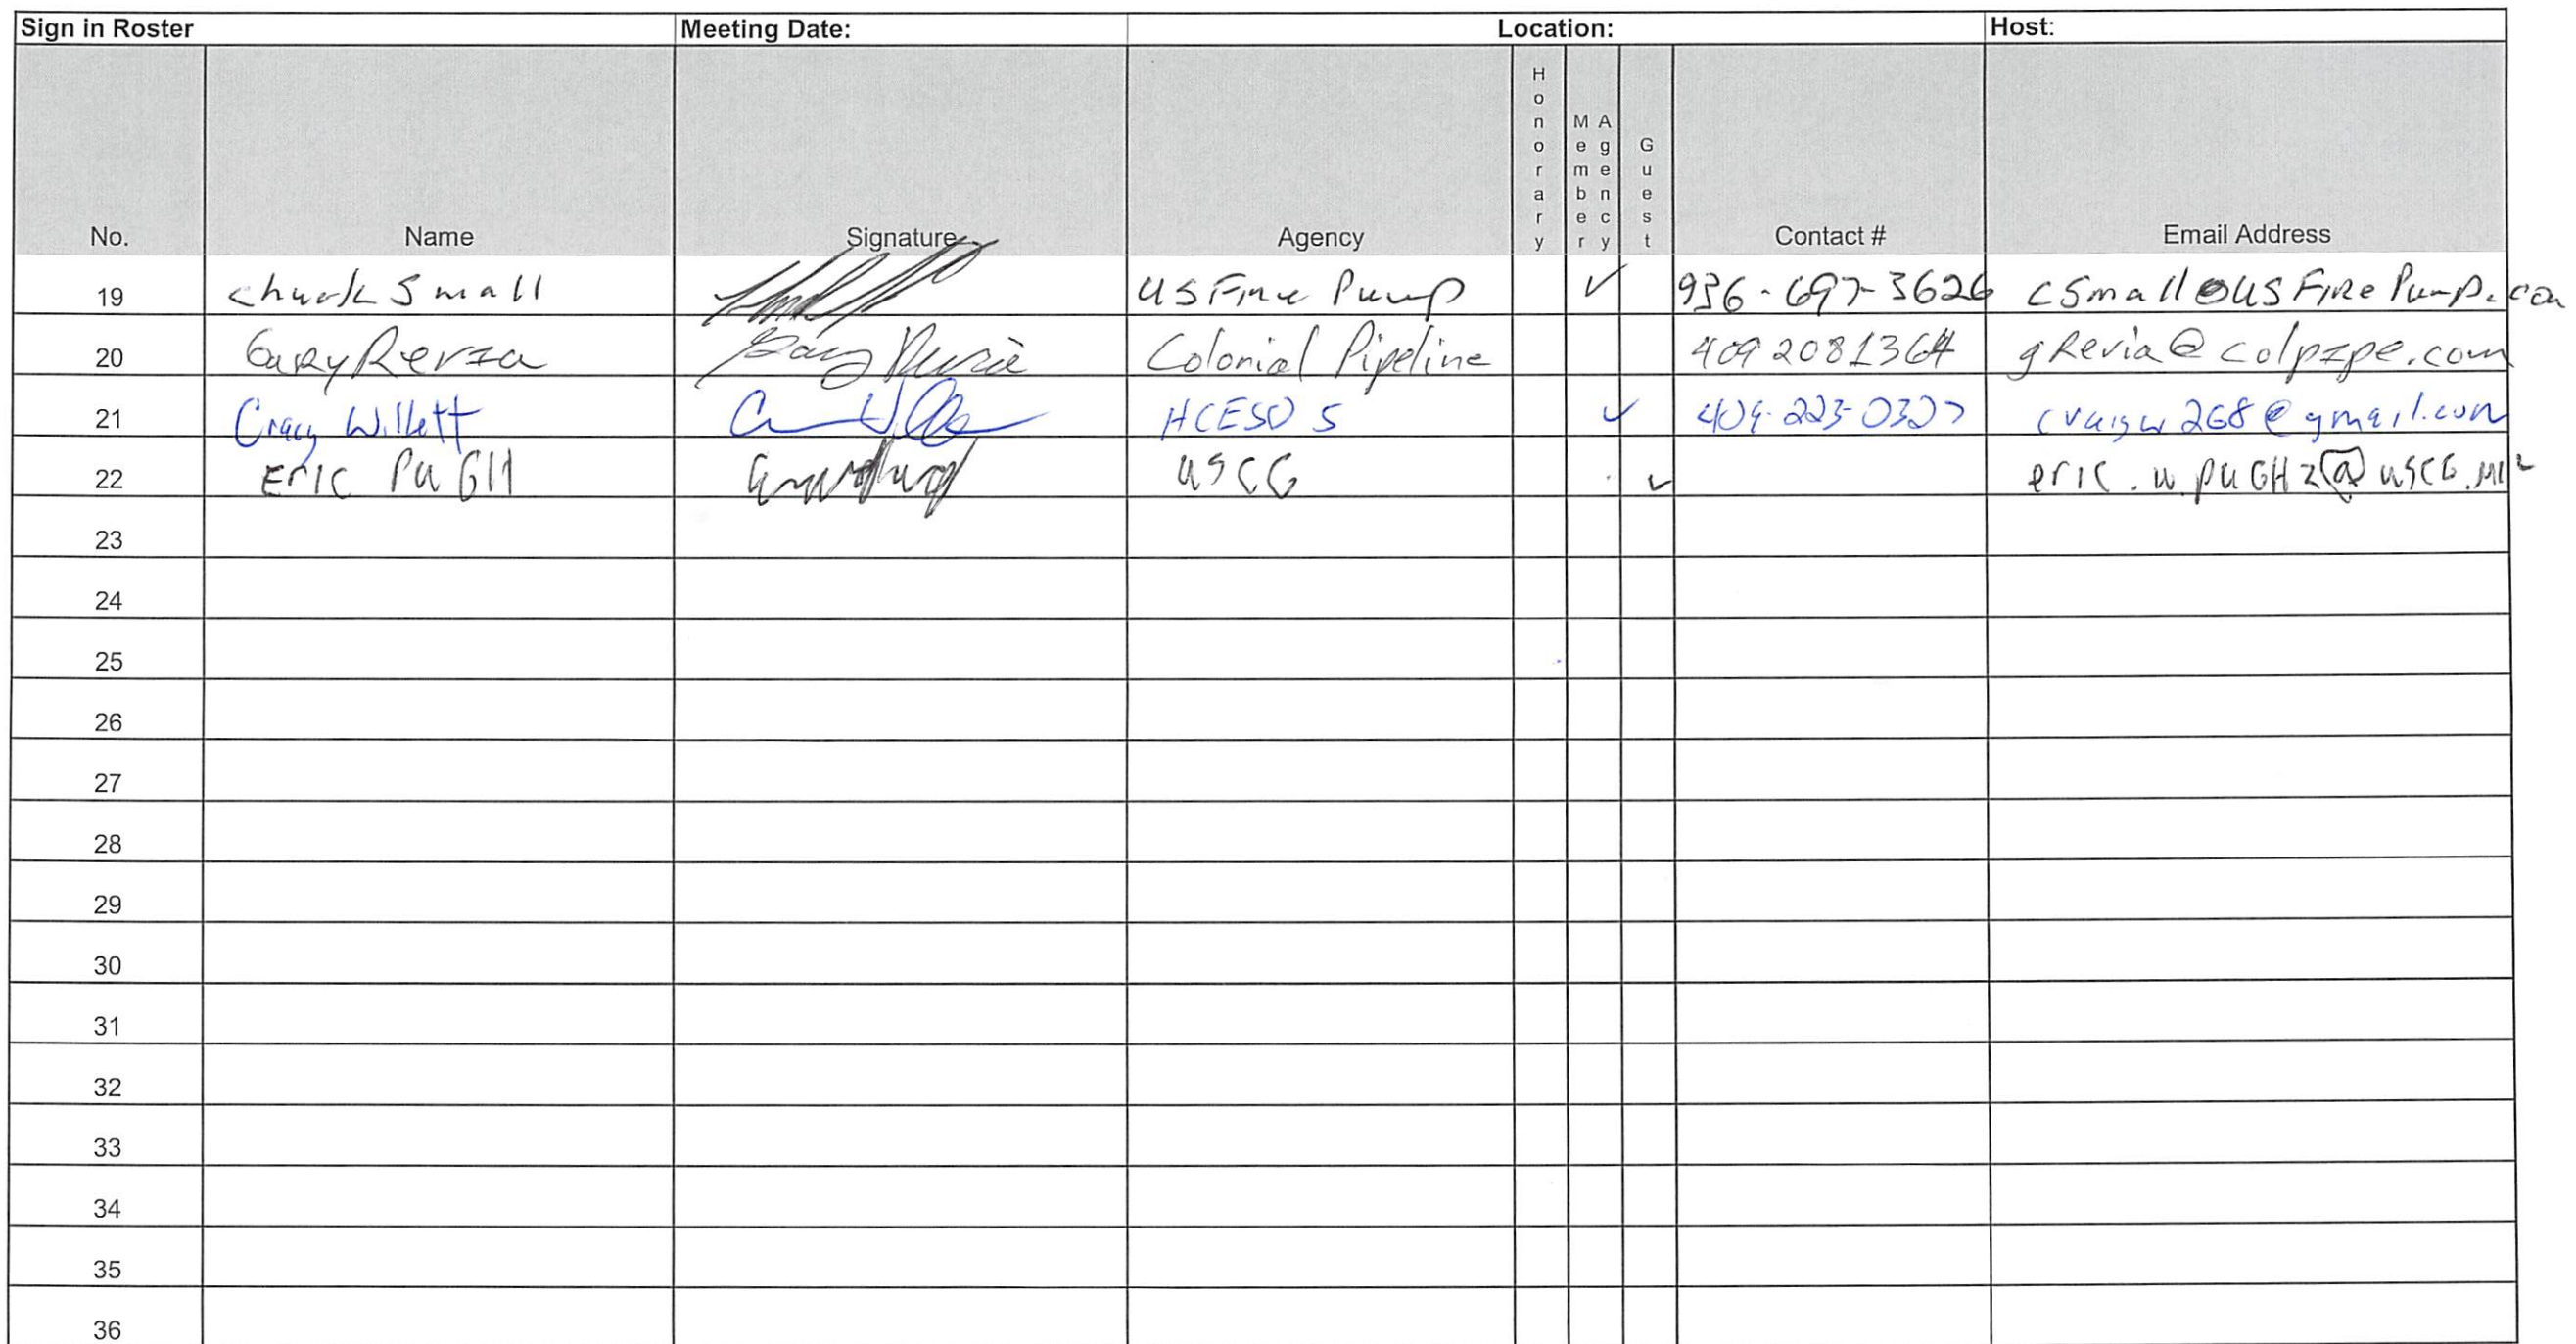 Sign in Roster Meeting Date: Location: Host:
No. Name Signature Agency Honorary Member Agency Guest Contact # Email Address
19 Chuck Small US Fire Pump ✓ 936-697-3626 CSmall@USFirePump.com
20 Gary Revia Gary Revia Colonial Pipeline 409 2081364 gRevia@colpipe.com
21 Craig Willett HCESD 5 ✓ 409-223-0327 @gmail.com
22 ERIC PUGH USCG ✓ eric.w.PUGH2@USCG.MIL
23
24
25
26
27
28
29
30
31
32
33
34
35
36